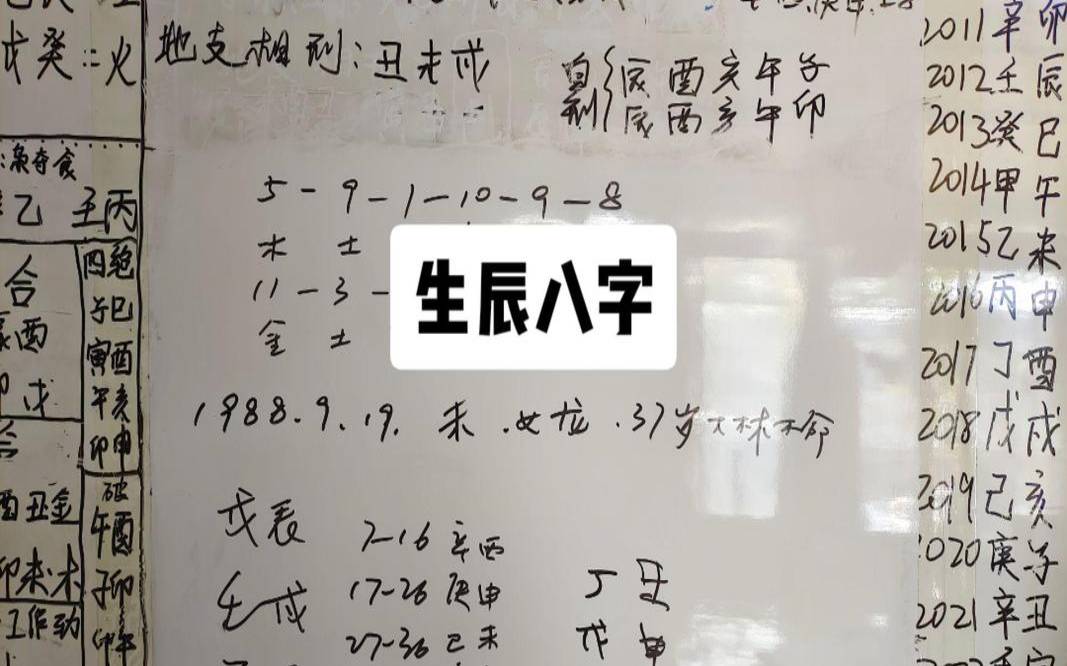 戊癸=火
地支相刑:丑未戌
自刑{辰酉亥午子
辰酉亥午卯
5-9-1-10-9-8
木 土
11-3-
金 土
生辰八字
1988.9.19.未.女龙.37岁大林木命
戊辰
7-16辛酉
壬戌
17-26庚申
27-36己未
丁
戊申
:枭夺食
乙 壬丙
合
酉
戌
四绝
子巳
寅酉
午亥
卯申
合
酉丑金
卯未木
工作动
破
午酉
子卯
2011辛卯
2012壬辰
2013癸巳
2014甲午
2015乙未
2016丙申
2017丁酉
2018戊戌
2019己亥
2020庚子
2021辛丑